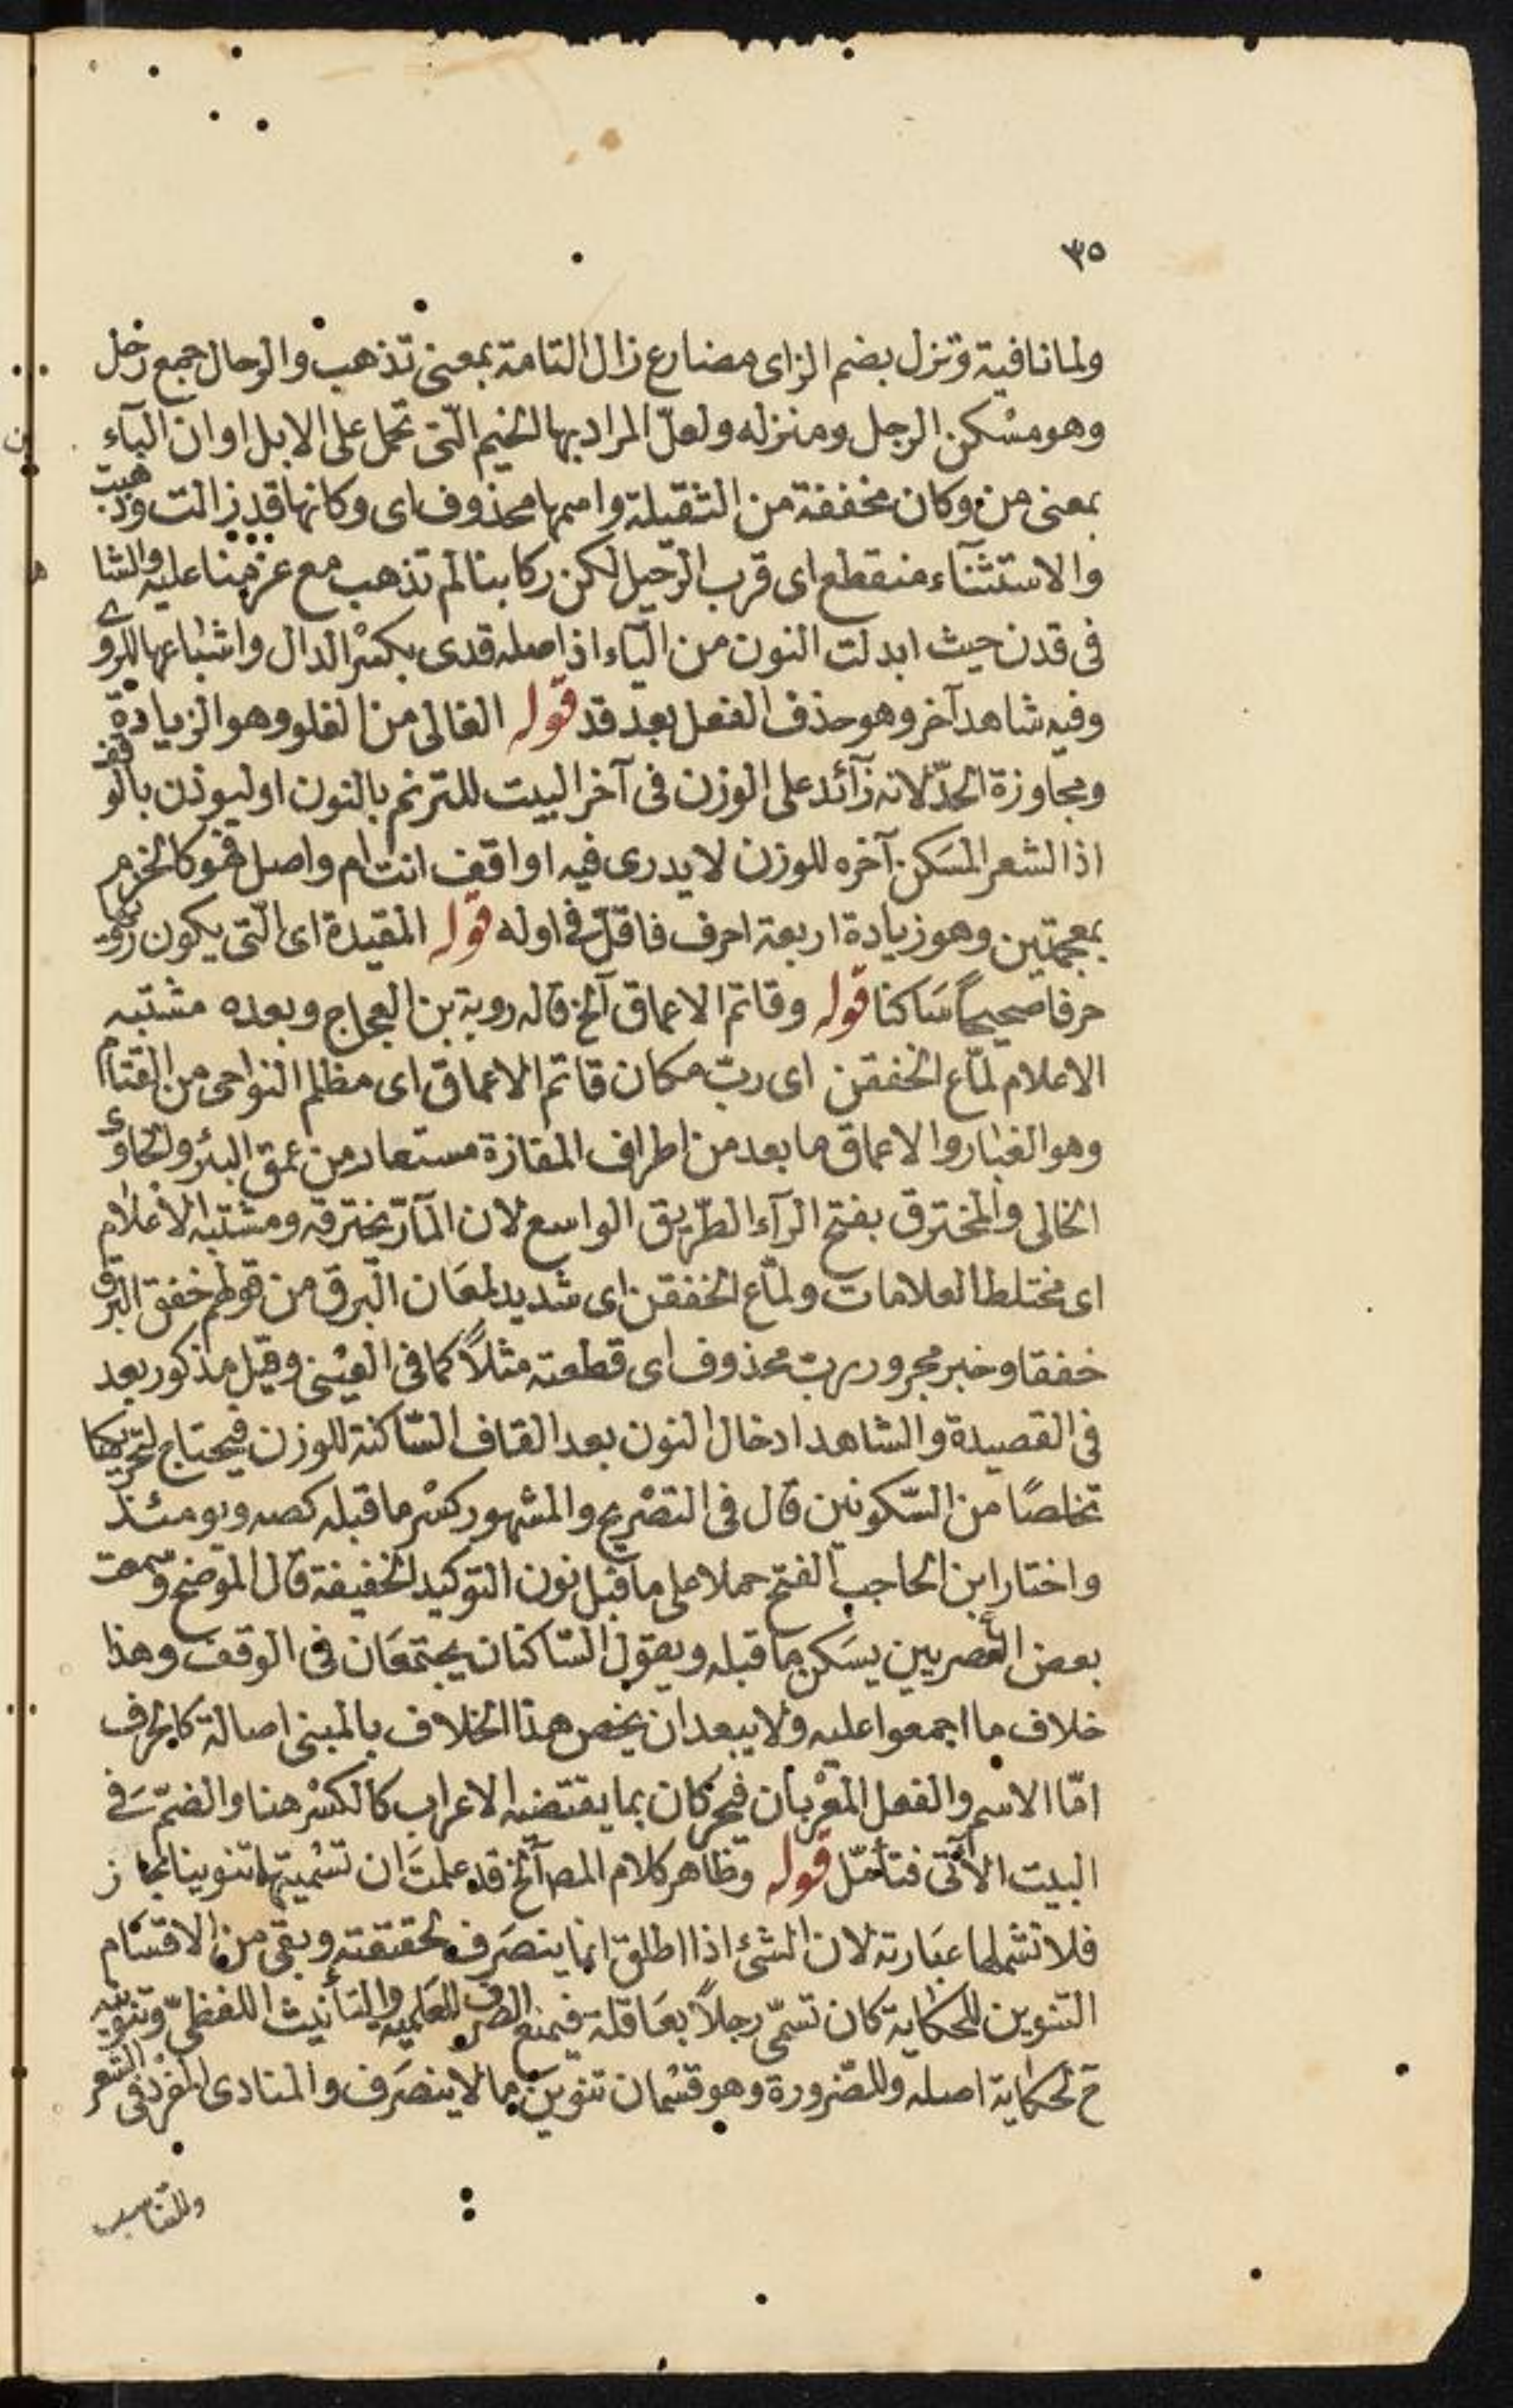 ٣٥
ولما نافية وتزل بضم الزاى مضارع زال التامة بمعنى تذهب والرحال جمع رحل
وهو مسْكن الرجل ومنزله ولعلّ المراد بها الخيم الّتى تحمل على الابل او ان البآء
بمعنى من وكان مخففة من الثقيلة واسمها محذوف اى وكانها قد زالت وذهبت
والاستثنآء منقطع اى قرب الرّحيل لكن ركابنا لم تذهب مع عزمنا عليه والشا
فى قدن حيث ابدلت النون من اليآء اذ اصله قدى بكسْر الدال واشباعها للروى
وفيه شاهد آخر وهو حذف الفعل بعد قد قوله الغالى من الغلو وهو الزيادة
ومجاوزة الحدّ لانه زآئد على الوزن فى آخر البيت للترنم بالنون او ليوذن بالوقف
اذ الشعر المسَكن آخره للوزن لا يدرى فيه اواقف انت ام واصل فهو كالخزم
بمعجمتين وهو زيادة اربعة احرف فاقلّ فى اوله قوله المقيدة اى الّتى يكون رويها
حرفا صحيحاً سَاكنا قوله وقاتم الاعماق آلخ قاله روبة بن العجاج وبعده مشتبه
الاعلام لمّاع الخفقن اى ربّ مكان قاتم الاعماق اى مظلم النواحى من القتام
وهو الغبار والاعماق ما بعد من اطراف المفازة مستعار من عمق البئر والخاوى
الخالى والمخترق بفتح الرآء الطّريق الواسع لان المآرّ يخترقه ومشتبه الاعْلام
اى مختلط العلامات ولمّاع الخفقن اى شديد لمعَان البّرق من قولهم خفق البرق
خفقا وخبر مجرور ربّ محذوف اى قطعته مثلاً كما فى العيْنى وقيل مذكور بعد
فى القصيدة والشاهد ادخال النون بعد القاف السّاكنة للوزن فيحتاج لتحريكها
تخلصًا من السّكونين قال فى التصْريح والمشهور كسْر ما قبله كصه ويومئذ
واختار ابن الحاجب الفتح حملا على ما قبل نون التوكيد الخفيفة قال الموضح وسمعت
بعض العصريين يسَكن ما قبله ويقول السّاكنان يجتمعَان فى الوقف وهذا
خلاف ما اجمعوا عليه ولا يبعد ان يخص هذا الخلاف بالمبنى اصالة كالحرف
امّا الاسم والفعل المعْربان فيحركان بما يقتضيه الاعراب كالكسْر هنا والضمّ فى
البيت الآتى فتأمّل قوله وظاهر كلام المصـ آلخ قد علمتَ ان تسْميتها تنوينا مجاز
فلا تشملها عبَارته لان الشئ اذا اطلق انما ينصَرف لحقيقته وبقى من الاقسَام
التنوين للحكاية كان تسمّى رجلاً بعَاقلة فيمنع الصّرف للعَلمية والتأنيث اللفظى وتنوينه
ح لحكاية اصله وللضّرورة وهو قسْمان تنوين ما لا ينصَرف والمنادى المفرد فى الشعر